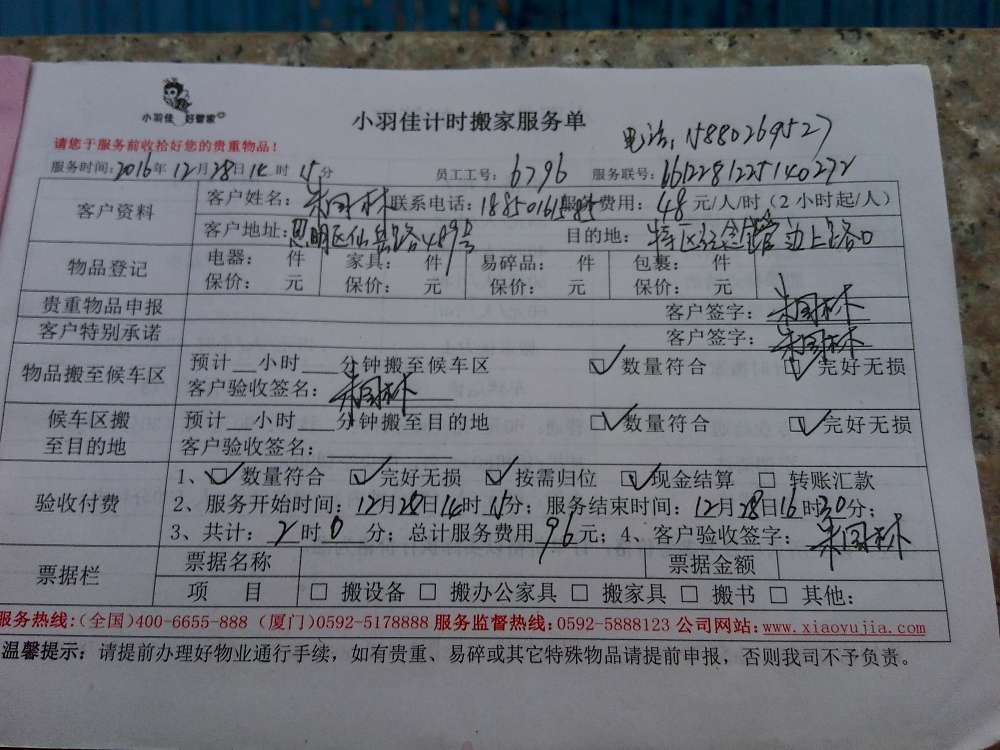 小羽佳 好管家
小羽佳计时搬家服务单
电话:15880269527
请您于服务前收拾好您的贵重物品!
服务时间:2016年12月28日14时15分 员工工号:6796 服务联号:6612281225140272
客户资料 客户姓名:朱国林 联系电话: 费用:48元/人/时(2小时起/人)
客户地址:思明区仙岳路489号 目的地:特区纪念馆边上路口
物品登记 电器: 件 家具: 件 易碎品: 件 包裹: 件
保价: 元 保价: 元 保价: 元 保价: 元
贵重物品申报 客户签字:朱国林
客户特别承诺 客户签字:朱国林
物品搬至候车区 预计__小时___分钟搬至候车区 ☑数量符合 ☑完好无损
客户验收签名:朱国林
候车区搬至目的地 预计__小时___分钟搬至目的地 ☑数量符合 ☑完好无损
客户验收签名:
验收付费 1、☑数量符合 ☑完好无损 ☑按需归位 ☑现金结算 □转账汇款
2、服务开始时间:12月28日14时15分;服务结束时间:12月28日16时30分;
3、共计:2时0分;总计服务费用96元;4、客户验收签字:朱国林
票据栏 票据名称 票据金额
项 目 □ 搬设备 □ 搬办公家具 □ 搬家具 □ 搬书 □ 其他:
服务热线:(全国)400-6655-888 (厦门)0592-5178888 服务监督热线:0592-5888123 公司网站:www.xiaoyujia.com
温馨提示:请提前办理好物业通行手续,如有贵重、易碎或其它特殊物品请提前申报,否则我司不予负责。